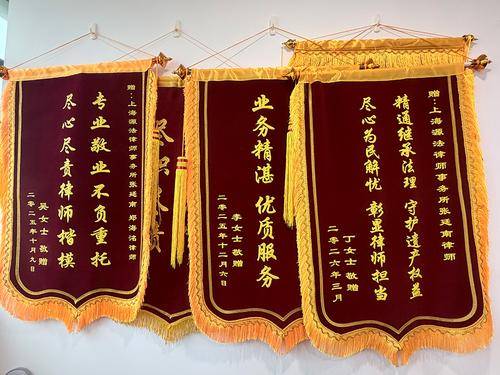 赠:上海源法律师事务所张廷南 郑海铭律师
专业敬业不负重托
尽心尽责律师楷模
吴女士敬赠
二〇二五年十月九日
业务精湛 优质服务
李女士敬赠
二〇二五年十二月六日
赠:上海源法律师事务所张廷南律师
精通继承法理 守护遗产权益
尽心为民解忧 彰显律师担当
丁女士敬赠
二〇二六年三月